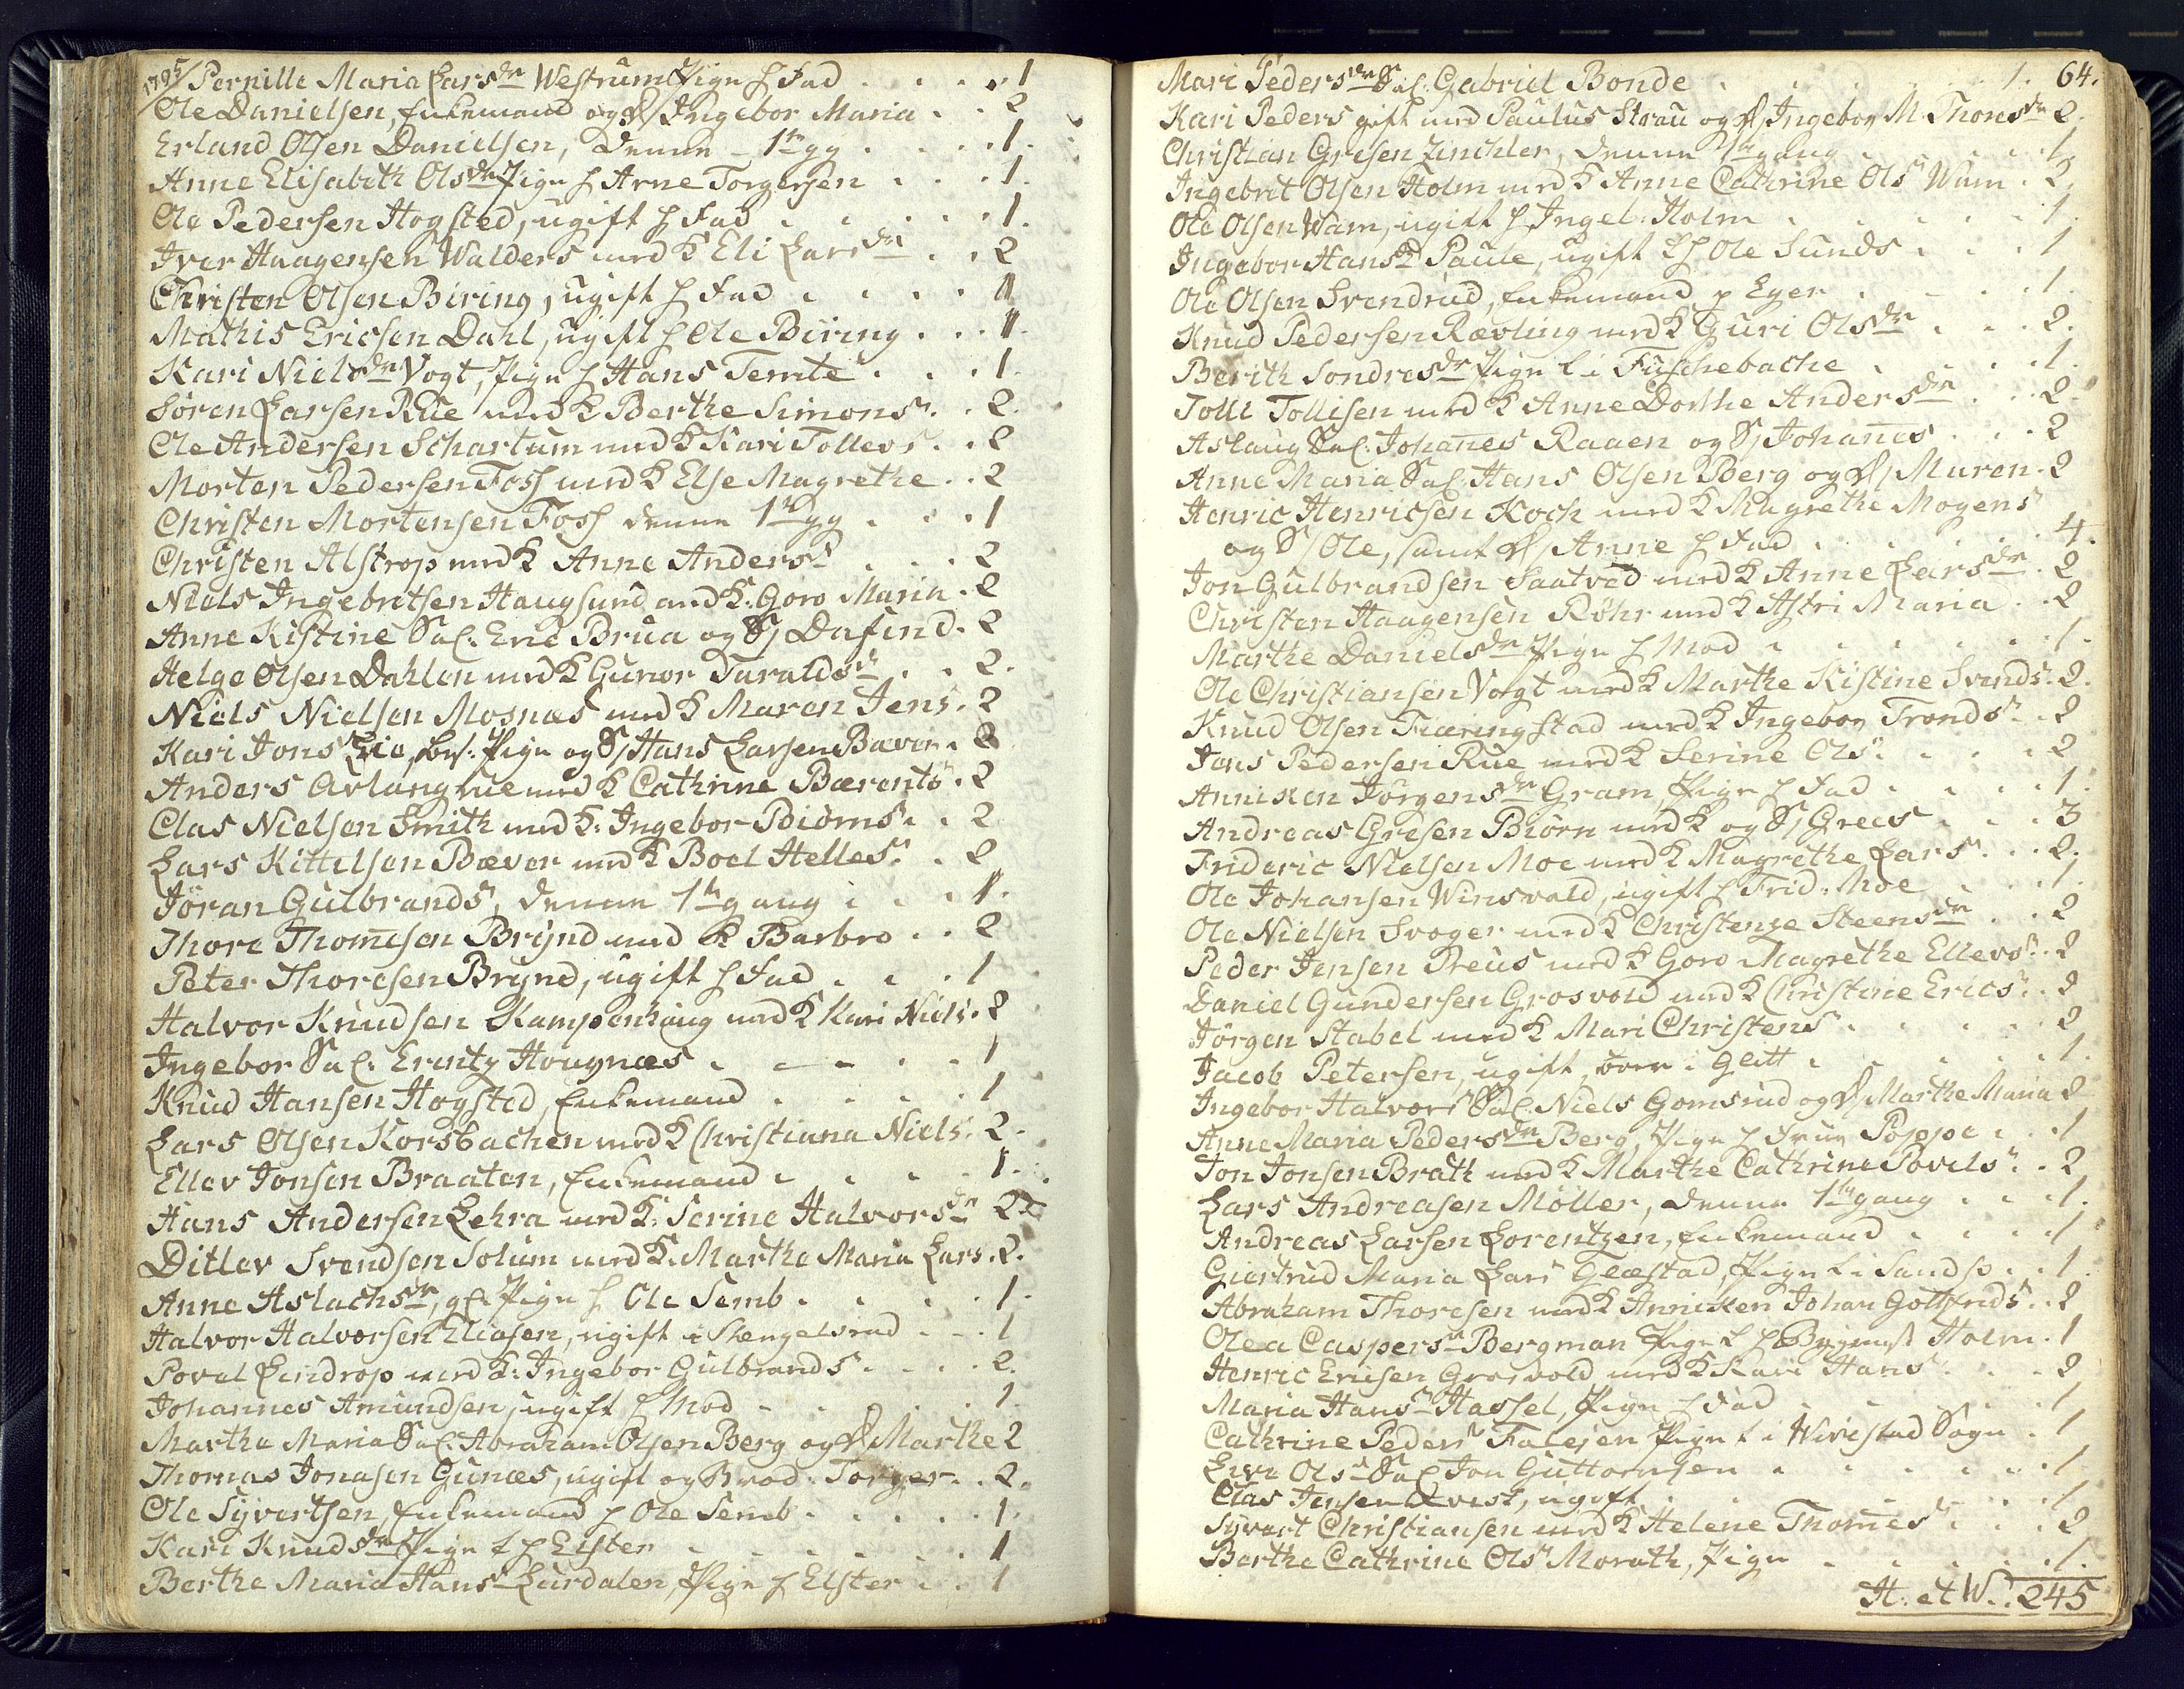 1795/ Pernille Maria Larsdr Westrum Pige h Fad . . . . 1
Ole Danielsen, Enkemand og D/ Ingebor Maria . . 2
Erland Olsen Danielsen, denne 1te gg . . . . 1.
Anne Elisabeth Olsdr Pige h Arne Torgersen . . . 1.
Ole Pedersen Hogsted, ugift h Fad . . . . . 1.
Iver Haagensen Walders med K Eli Larsdr . . 2
Christen Olsen Biring, ugift h Fad . . . . 1
Mathis Ericsen Dahl, ugift h Ole Biring . . . 1.
Kari Nielsdr Vogt, Pige h Hans Temte . . . 1.
Søren Larsen Rue med K Berthe Simons. . . 2.
Ole Andersen Schartum med K Kari Tollevs. . . 2
Morten Pedersen Foss med K Else Magrethe . . 2
Christen Mortensen Foss denne 1te gg . . . 1
Christen Alstrop med K Anne Anders . . . 2
Niels Ingebritsen Haugsund med K: Goro Maria . 2
Anne Kistine Sal. Eric Brua og S/ Dafind . 2
Helge Olsen Dahlen med K Gunor Taraldsdr . . 2.
Niels Nielsen Mosnæs med K Maren Jens . 2
Kari Jons Lie, Pige og S/ Hans Larsen Bæver . 2
Anders Avlangrue med K Cathrine Bærents . 2
Clas Nielsen Smith med K: Ingebor Biørns . . 2
Lars Kittilsen Bæver med K Boel Helles . . 2
Jöran Gulbrands, denne 1te gang . . . 1.
Thore Thomesen Brynd med K Barbro . . 2
Peter Thoresen Brynd, ugift h Fad . . . 1
Halvor Knudsen Kampenhaug med K Kari Niels . 2
Ingebor Sal. Erentz Hougnæs . . . . . 1
Knud Hansen Hogsted, Enkemand . . . . 1
Lars Olsen Korsbachen med K Christiana Niels . 2.
Ellev Jonsen Braaten, Enkemand . . . . 1.
Hans Andersen Lehra med K: Serine Halvorsdr 2
Ditlev Svendsen Solum med K. Marthe Maria Lars . 2.
Anne Aslachsdr, gl. Pige h Ole Semb . . . . . 1.
Halvor Halvorsen Eliasen, ugift i Stengelsrud . . . 1
Povel Lindrop med K: Ingebor Gulbrands . . . . 2.
Johannes Amundsen, ugift h Mod . . . . . 1.
Marthe Maria Sal. Abraham Olsen Berg og D/ Marthe 2
Thomas Jonasen Gunæs, ugift og Brod. Torger . . 2.
Ole Syvertsen, Enkemand h Ole Semb . . . . . 1.
Kari Knudsdr Pige t h Elster . . . . . . 1
Berthe Maria Hans Lurdalen, Pige h Elster . . 1
Mari Pedersdr Sal. Gabriel Bonde . . . . . . 1. 64.
Kari Peders gift med Paulus Strøu og D/ Ingebor M. Thoresdr 2.
Christian Gresen Zinchler, denne 1te gang . . . . . 1.
Ingebret Olsen Holm med K Anne Cathrine Ols Wam . 2.
Ole Olsen Wam, ugift h Ingeb. Holm . . . . . . 1.
Ingebor Hans Paule, ugift h Ole Sunds . . . 1
Ole Olsen Svendrud, Enkemand p Eger . . . . . 1.
Knud Pedersen Rævling med K Guri Olsdr . . . 2.
Berith Sondresdr Pige t i Fuschebache . . . . . 1.
Tolle Tollisen med K Anne Dorthe Andersdr . . . 2.
Aslaug Sal. Johanes Raaen og S/ Johanes . . . 2
Anne Maria Sal. Hans Olsen Berg og D/ Maren . 2
Henric Henricsen Koch med K Magrethe Mogens
og S/ Ole, samt D/ Anne h Fad . . . . . . 4.
Jon Gulbrandsen Saatved med K Anne Larsdr . 2
Christen Haagensen Röhr med K Astri Maria . . 2
Marthe Danielsdr Pige h Mod . . . . . . . 1.
Ole Christiansen Vogt med K Marthe Kistine Svends . 2.
Knud Olsen Fiæringstad med K Ingebor Tronds . . 2
Jens Pedersen Rue med K Serine Ols . . . . . 2
Anniken Jörgensdr Gram, Pige h Fad . . . . . 1.
Andreas Gresen Biørn med K og S/ Grees . . . 3
Frideric Nielsen Moe med K Magrethe Lars . . . 2.
Ole Johansen Winsvold, ugift h Frid: Moe . . . 1.
Ole Nielsen Svager med K Christenze Steensdr . . 2
Peder Jensen Preus med K Goro Magrethe Ellevs . . 2
Daniel Gundersen Grosvold med K Christine Erics . . 2
Jörgen Stabel med K Mari Christens . . . . . 2
Jacob Petersen, ugift, i Glitt . . . . . . 1.
Ingebor Halvors Sal. Niels Gomsrud og D/ Marthe Maria 2
Anne Maria Pedersdr Berg, Pige h Poppe . . . 1
Jon Jonsen Brath med K Marthe Cathrine Povels . . 2
Lars Andreasen Möller, denne 1te gang . . . 1.
Andreas Larsen Lorentzen, Enkemand . . . . 1
Giertrud Maria Lars Glæstad, Pige t i Sands . . 1.
Abraham Thoresen med K Anniken Johan Gottfrids . . 2
Olea Caspers Bergman Pige t h Holm . 1
Henric Ericsen Grosvold med K Kari Hans . . . 2
Maria Hans Hassel, Pige h Fad . . . . . . 1
Cathrine Peders Falesen Pige t i Wivestad Sogn . 1
Live Ols Sal. Jon Guttormsen . . . . . . 1.
Clas Jensen Qvist, ugift . . . . . . 1.
Syvert Christiansen med K Helene Thomes . . . 2
Berthe Cathrine Ols Morath, Pige . . . . . 1.
H. et W.: 245